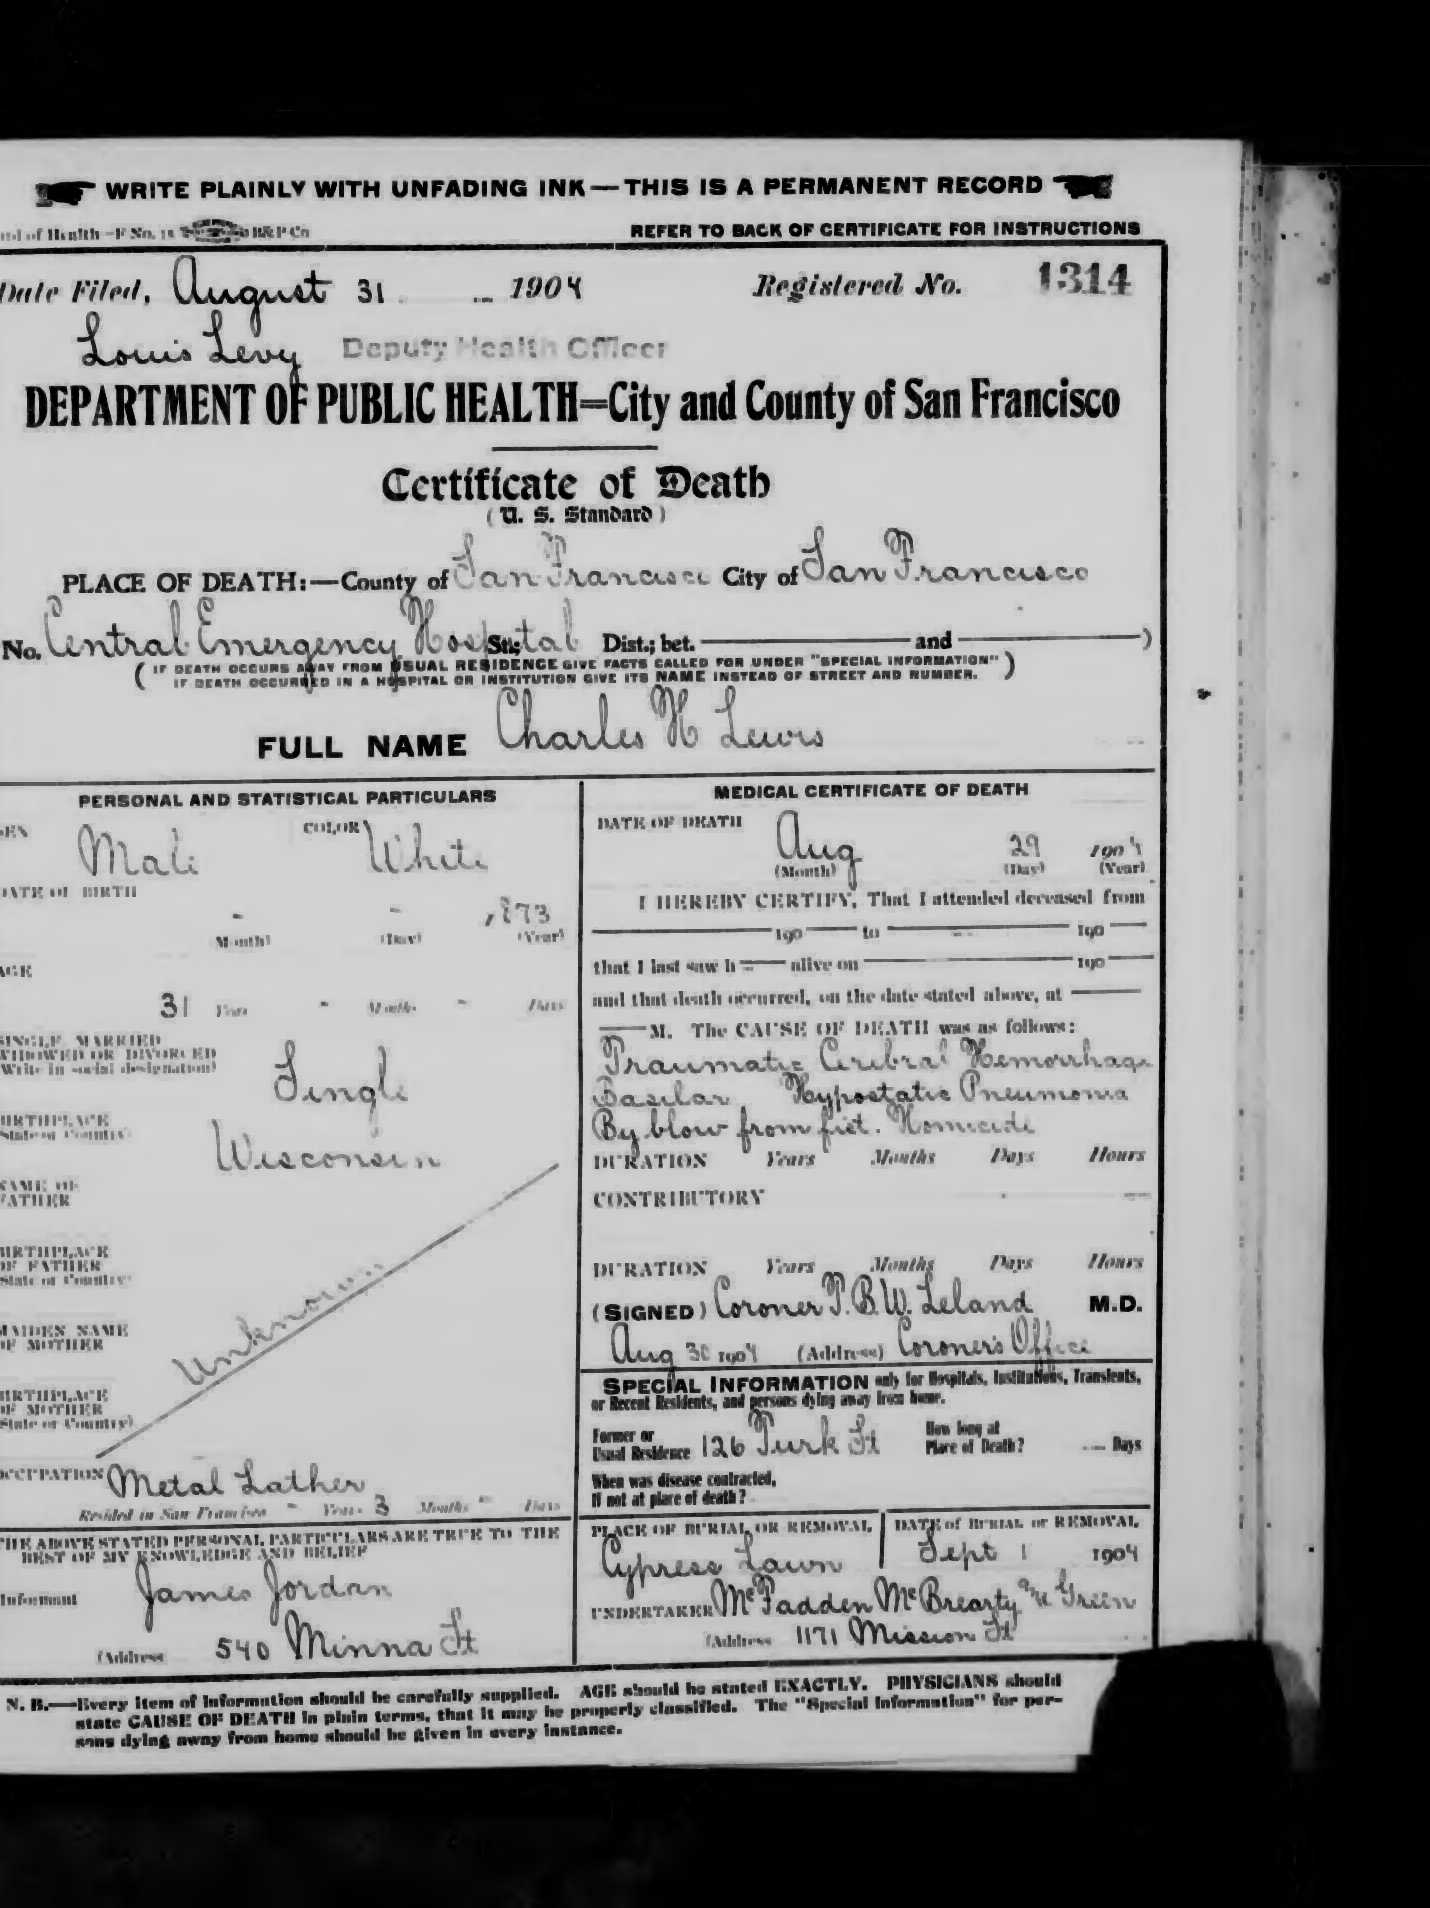 WRITE PLAINLY WITH UNFADING INK—THIS IS A PERMANENT RECORD
of Health—F No. 15 B&P Co REFER TO BACK OF CERTIFICATE FOR INSTRUCTIONS
Date Filed, August 31 1904 Registered No. 1314
Louis Levy Deputy Health Officer
DEPARTMENT OF PUBLIC HEALTH=City and County of San Francisco
Certificate of Death
(U. S. Standard)
PLACE OF DEATH:—County of San Francisco City of San Francisco
No. Central Emergency Hospital St.; Dist.; bet. and )
( IF DEATH OCCURS AWAY FROM USUAL RESIDENCE GIVE FACTS CALLED FOR UNDER "SPECIAL INFORMATION" )
IF DEATH OCCURRED IN A HOSPITAL OR INSTITUTION GIVE ITS NAME INSTEAD OF STREET AND NUMBER.
FULL NAME Charles H Lewis
PERSONAL AND STATISTICAL PARTICULARS
SEX Male COLOR White
DATE OF BIRTH
- - 1873
(Month) (Day) (Year)
AGE
31 Years - Months - Days
SINGLE, MARRIED
WIDOWED OR DIVORCED
(Write in social designation)
Single
BIRTHPLACE
(State or Country)
Wisconsin
NAME OF
FATHER
BIRTHPLACE
OF FATHER
(State or Country)
Unknown
MAIDEN NAME
OF MOTHER
BIRTHPLACE
OF MOTHER
(State or Country)
OCCUPATION Metal Lather
Resided in San Francisco - Years 3 Months - Days
THE ABOVE STATED PERSONAL PARTICULARS ARE TRUE TO THE
BEST OF MY KNOWLEDGE AND BELIEF
Informant James Jordan
(Address 540 Minna St
MEDICAL CERTIFICATE OF DEATH
DATE OF DEATH
Aug 29 1904
(Month) (Day) (Year)
I HEREBY CERTIFY, That I attended deceased from
190 to 190
that I last saw h alive on 190
and that death occurred, on the date stated above, at
M. The CAUSE OF DEATH was as follows:
Traumatic Cerebral Hemorrhage
Basilar Hypostatic Pneumonia
By blow from fist. Homicide
DURATION Years Months Days Hours
CONTRIBUTORY
DURATION Years Months Days Hours
(SIGNED) Coroner T. B. W. Leland M.D.
Aug 30 1904 (Address) Coroner's Office
SPECIAL INFORMATION only for Hospitals, Institutions, Transients,
or Recent Residents, and persons dying away from home.
Former or
Usual Residence 126 Turk St
How long at
Place of Death? Days
When was disease contracted,
If not at place of death?
PLACE OF BURIAL OR REMOVAL
Cypress Lawn
DATE of BURIAL or REMOVAL
Sept 1 1904
UNDERTAKER McFadden McBrearty and Green
(Address 1171 Mission St
N. B.—Every item of information should be carefully supplied. AGE should be stated EXACTLY. PHYSICIANS should
state CAUSE OF DEATH in plain terms, that it may be properly classified. The "Special Information" for per-
sons dying away from home should be given in every instance.